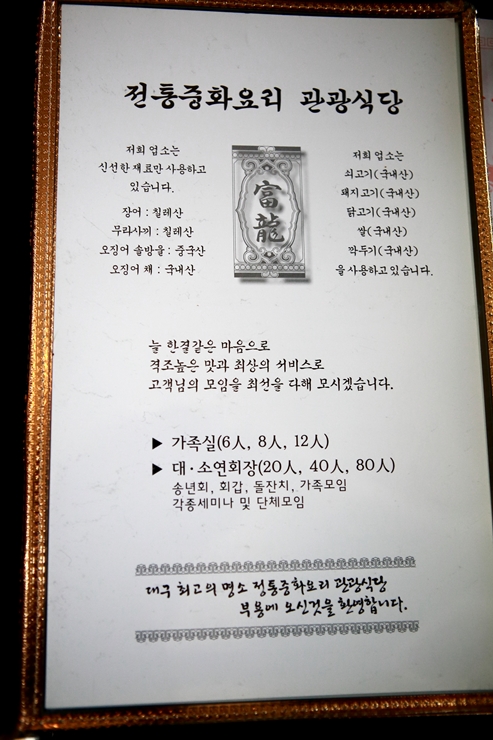 전통중화요리 관광식당
저희 업소는
신선한 재료만 사용하고
있습니다.
장어 : 칠레산
무라사끼 : 칠레산
오징어 솔방울 : 중국산
오징어 채 : 국내산
富龍
저희 업소는
쇠고기(국내산)
돼지고기(국내산)
닭고기(국내산)
쌀(국내산)
깍두기(국내산)
을 사용하고 있습니다.
늘 한결같은 마음으로
격조높은 맛과 최상의 서비스로
고객님의 모임을 최선을 다해 모시겠습니다.
▶ 가족실(6人, 8人, 12人)
▶ 대·소연회장(20人, 40人, 80人)
송년회, 회갑, 돌잔치, 가족모임
각종세미나 및 단체모임
대구 최고의 명소 정통중화요리 관광식당
부용에 오신것을 환영합니다.